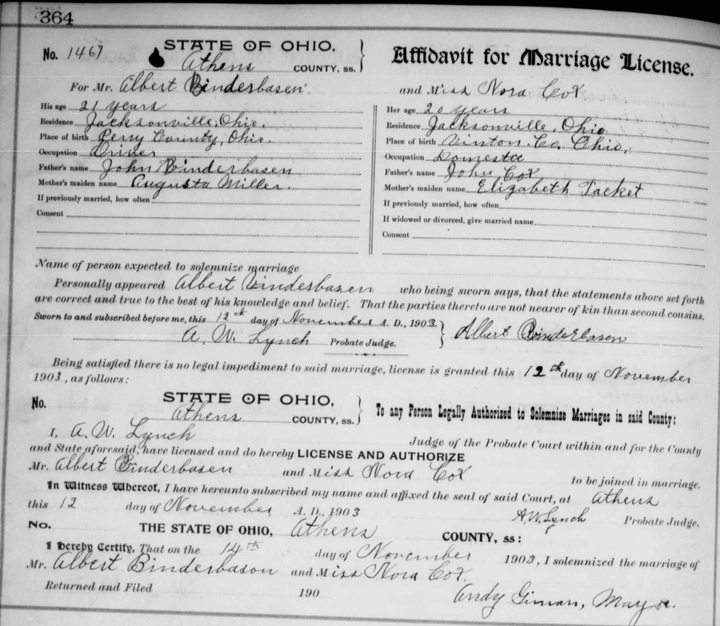 364
No. 1467 STATE OF OHIO, Athens COUNTY, ss. Affidavit for Marriage License.
For Mr. Albert Binderbasen and Miss Nora Cox
His age 21 years
Residence Jacksonville, Ohio.
Place of birth Perry County, Ohio
Occupation Driver
Father's name John Binderbasen
Mother's maiden name Augusta Miller.
If previously married, how often
Consent
Her age 20 years
Residence Jacksonville, Ohio
Place of birth Vinton Co, Ohio,
Occupation Domestic
Father's name John Cox
Mother's maiden name Elizabeth Tacket
If previously married, how often
If widowed or divorced, give married name
Consent
Name of person expected to solemnize marriage
Personally appeared Albert Binderbasen who being sworn says, that the statements above set forth
are correct and true to the best of his knowledge and belief. That the parties thereto are not nearer of kin than second cousins.
Sworn to and subscribed before me, this 12th day of November A. D., 1903
A. W. Lynch Probate Judge. Albert Binderbasen
Being satisfied there is no legal impediment to said marriage, license is granted this 12th day of November
1903, as follows:
No. STATE OF OHIO, Athens COUNTY, ss. To any Person Legally Authorized to Solemnise Marriages in said County:
I, A. W. Lynch Judge of the Probate Court within and for the County
and State aforesaid, have licensed and do hereby LICENSE AND AUTHORIZE
Mr. Albert Binderbasen and Miss Nora Cox to be joined in marriage.
In Witness Whereof, I have hereunto subscribed my name and affixed the seal of said Court, at Athens
this 12 day of November A. D., 1903
A. W. Lynch Probate Judge.
No. THE STATE OF OHIO, Athens COUNTY, ss:
I Hereby Certify, That on the 14th day of November 1903, I solemnized the marriage of
Mr. Albert Binderbason and Miss Nora Cox
Returned and Filed 190 Andy Giman, Mayor.